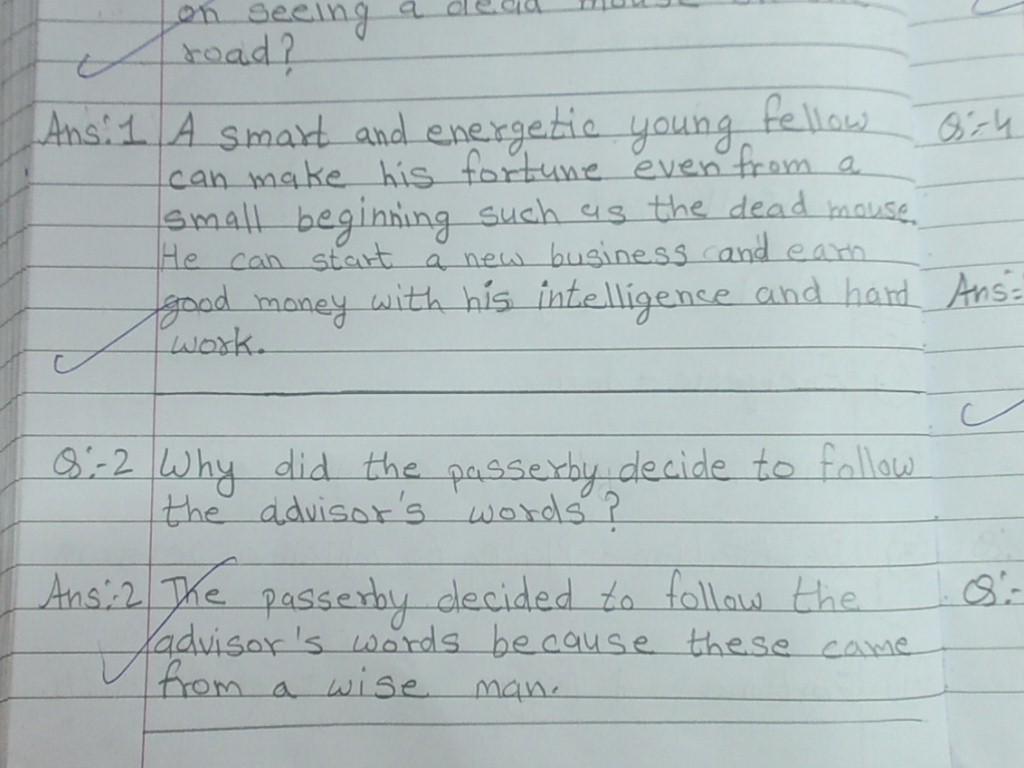 on seeing a dead mouse on
road?
Ans:1 A smart and energetic young fellow
can make his fortune even from a
small beginning such as the dead mouse.
He can start a new business and earn
good money with his intelligence and hard
work.
Q:-2 Why did the passerby decide to follow
the advisor's words?
Ans:-2 The passerby decided to follow the
advisor's words because these came
from a wise man.
Q:-4
Ans:-
Q:-